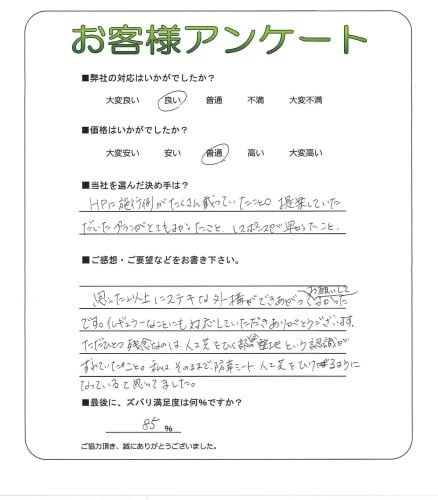 お客様アンケート
■弊社の対応はいかがでしたか?
大変良い 良い 普通 不満 大変不満
■価格はいかがでしたか?
大変安い 安い 普通 高い 大変高い
■当社を選んだ決め手は?
HPに施行例がたくさん載っていたこと。提案していた
だいたプランがとてもよかったこと、レスポンスが早かったこと。
■ご感想・ご要望などをお書き下さい。
お願いして
思った以上にステキな外構ができあがってよかった
です。イレギュラーなことにも対応していただきありがとうございます。
ただひとつ残念なのは、人工芝をひく部 整地という認識が
ずれていたこと。そのままで防草シート、人工芝をひけるように
なっていると思ってました。
■最後に、ズバリ満足度は何%ですか?
85 %
ご協力頂き、誠にありがとうございました。